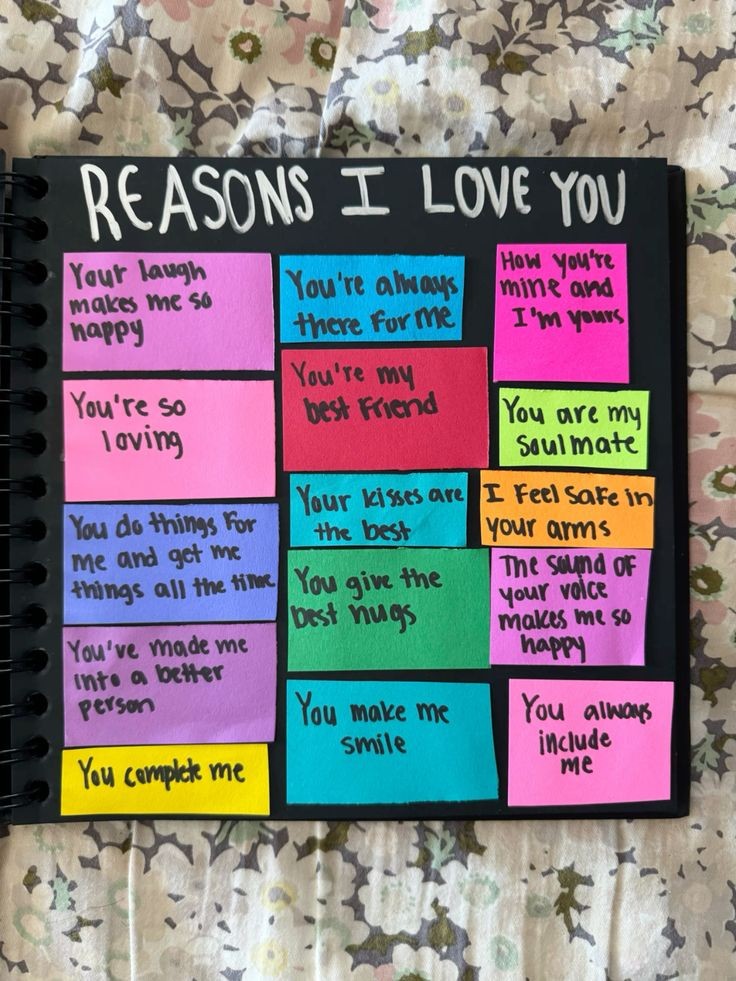 REASONS I LOVE YOU
Your laugh
makes me so
happy
You're so
loving
You do things for
me and get me
things all the time
You've made me
into a better
person
You complete me
You're always
there for me
You're my
best friend
Your kisses are
the best
You give the
best hugs
You make me
smile
How you're
mine and
I'm yours
You are my
soulmate
I feel safe in
your arms
The sound of
your voice
makes me so
happy
You always
include
me